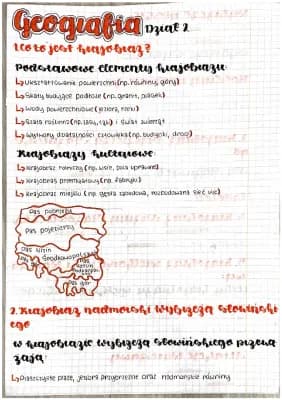 Geografia Dział 2
1. Co to jest krajobraz?
Podstawowe elementy krajobrazu:
↳ Ukształtowanie powierzchni (np. równiny, góry)
↳ Skały budujące podłoże (np. granit, piasek)
↳ Wody powierzchniowe (jeziora, rzeki)
↳ Szata roślinna (np. lasy, łąki) i świat zwierząt
↳ Wytwory działalności człowieka (np. budynki, drogi)
Krajobrazy kulturowe:
↳ Krajobraz rolniczy (np. wsie, pola uprawne)
↳ Krajobraz przemysłowy (np. fabryki)
↳ Krajobraz miejski (np. gęsta zabudowa, rozbudowana sieć ulic)
Pas pobrzeży
Pas pojezierzy
Pas Nizin
Środkowopolskich
Pas gór
2. Krajobraz nadmorski wybrzeża słowińskі
ego
w krajobrazie wybrzeża słowińskiego przewa
żają:
↳ Piaszczyste plaże, jeziora przybrzeżne oraz nadmorskie równiny